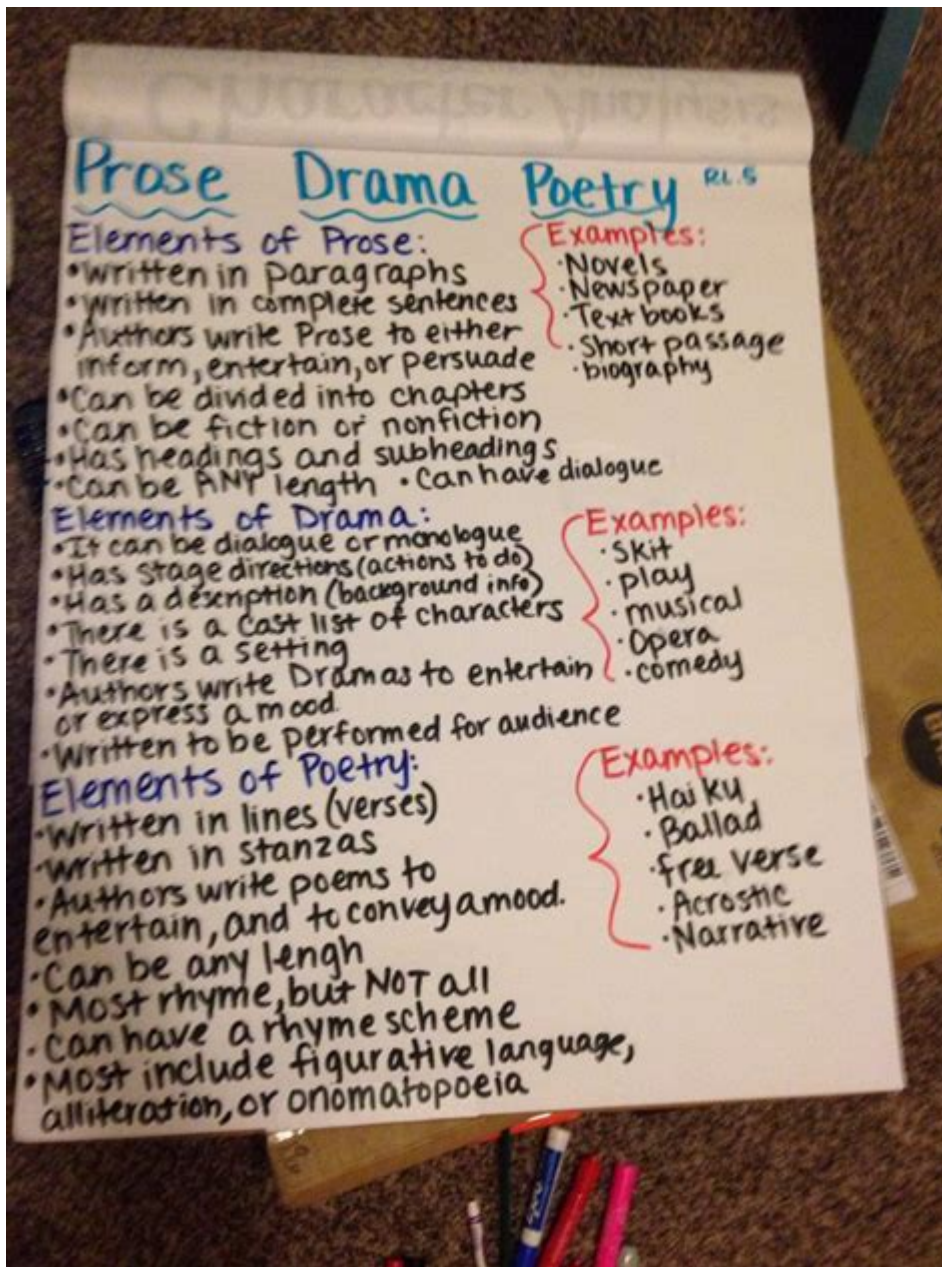 Character Analysis
Prose Drama Poetry RL.5
Elements of Prose:
•Written in paragraphs
•Written in complete sentences
•Authors write Prose to either
inform, entertain, or persuade
•Can be divided into chapters
•Can be fiction or nonfiction
•Has headings and subheadings
•Can be ANY length •Can have dialogue
Examples:
•Novels
•Newspaper
•Textbooks
•Short passage
•biography
Elements of Drama:
•It can be dialogue or monologue
•Has stage directions (actions to do)
•Has a description (background info)
•There is a cast list of characters
•There is a setting
•Authors write Dramas to entertain
or express a mood
•Written to be performed for audience
Examples:
•Skit
•play
•musical
•Opera
•comedy
Elements of Poetry:
•Written in lines (verses)
•Written in stanzas
•Authors write poems to
entertain, and to convey a mood.
•Can be any lengh
•Most rhyme, but NOT all
•Can have a rhyme scheme
•Most include figurative language,
alliteration, or onomatopoeia
Examples:
•Haiku
•Ballad
•free verse
•Acrostic
•Narrative